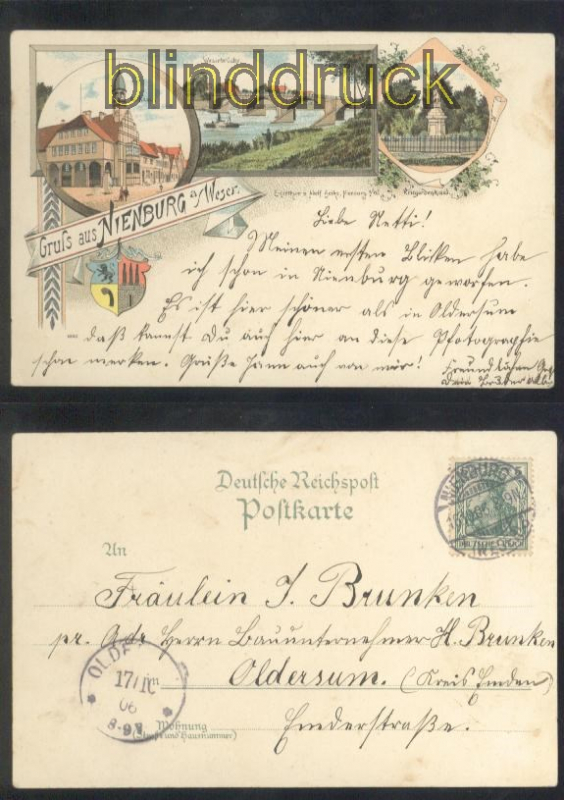 blinddruck
Weserbrücke
Kriegerdenkmal
Gruß aus NIENBURG a/Weser.
Liebe Netti!
Meinen ersten Blicken habe
ich schon in Nienburg geworfen.
Es ist hier schöner als in Oldersum
– daß kannst Du auch hier an diese Pfotographie
schon merken. Grüße Jann auch von mir!
Dein Bruder
Deutsche Reichspost
Postkarte
An
Fräulein J. Brunken
pr. Adr. Herrn Bauunternehmer H. Brunken
Oldersum. (Kreis Emden)
Emderstraße.
Wohnung
(Straße und Hausnummer)
NIENBURG
OLDE
17/10
06
8-9V